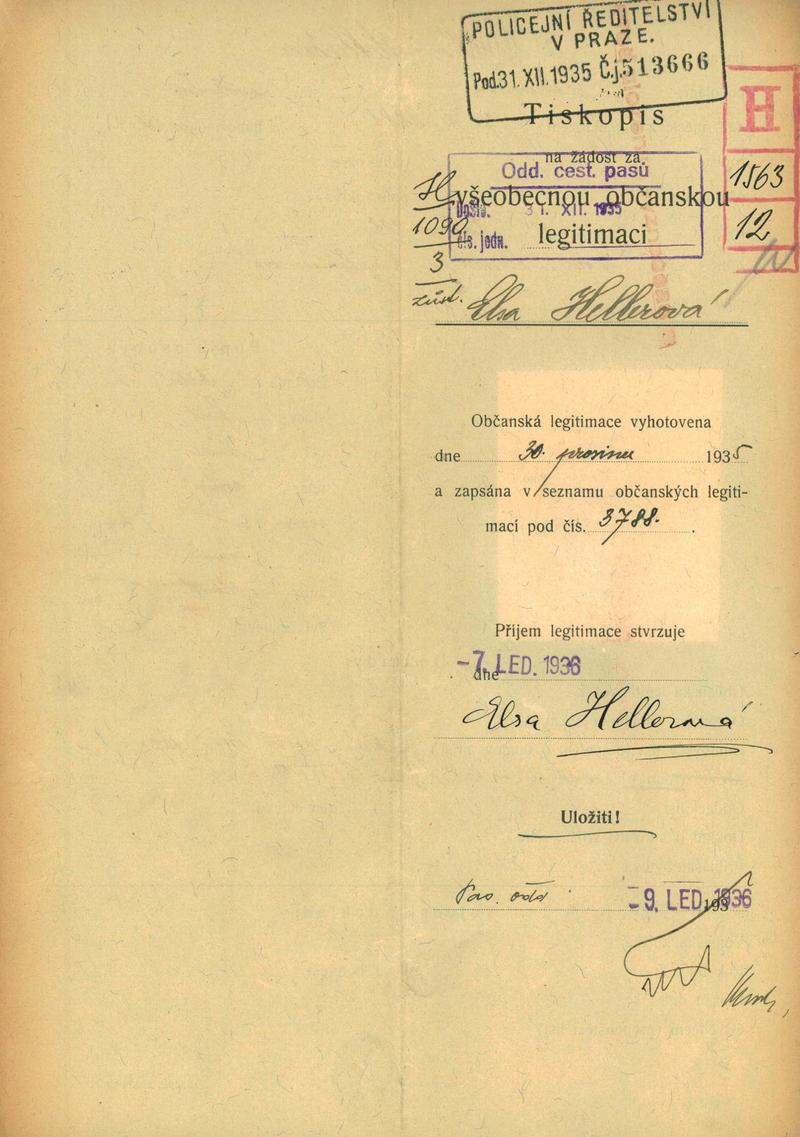 POLICEJNÍ ŘEDITELSTVÍ
V PRAZE.
Pod. 31. XII. 1935 Č.j. 513666
H
1563
12
Tiskopis
na žádost za
Odd. cest. pasů
všeobecnou občanskou
Došlo. 31. XII. 1935
čís. jedn.
legitimaci
H
1090
3
Elsa Hellerová
Občanská legitimace vyhotovena
dne 30. prosince 1935
a zapsána v seznamu občanských legiti-
mací pod čís. 3788.
Příjem legitimace stvrzuje
dne -7. LED. 1936
Elsa Hellerová
Uložiti!
Pas. odd. -9. LED. 1936